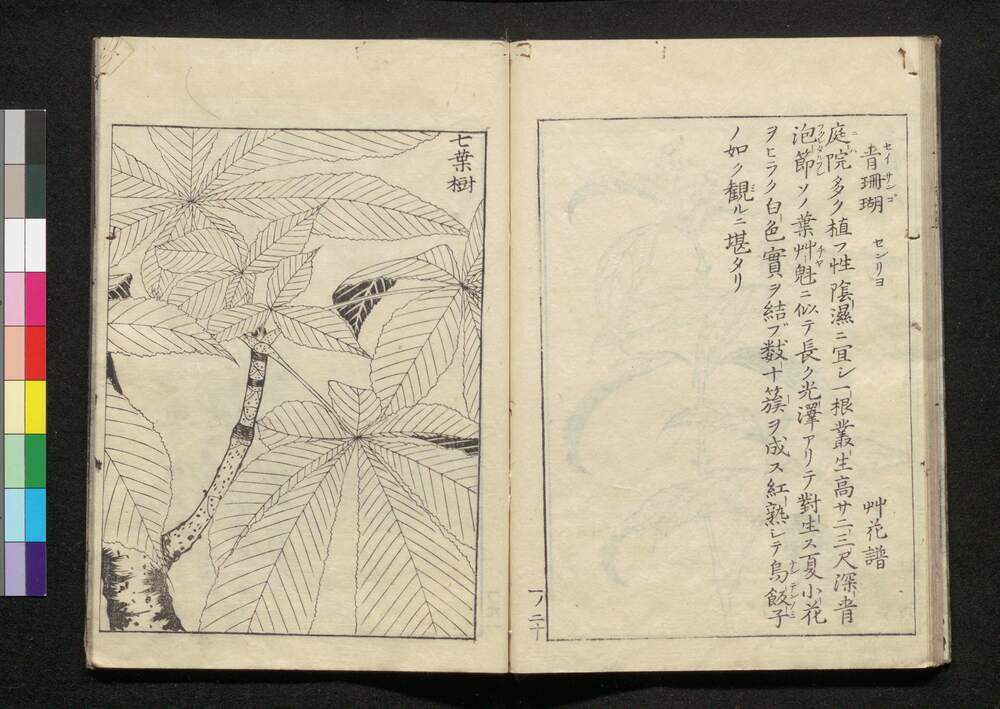 青珊瑚 セイサンゴ センリヨ 艸花譜
庭院多ク植フ性陰濕ニ宜シ一根叢生高サ二三尺深青
泡節ソノ葉艸魁ニ似テ長ク光澤アリテ對生ス夏小花
ヲヒラク白色實ヲ結ブ数十簇ヲ成ス紅熟シテ烏飯子
ノ如ク観ルニ堪タリ
一ノ二十
七葉樹